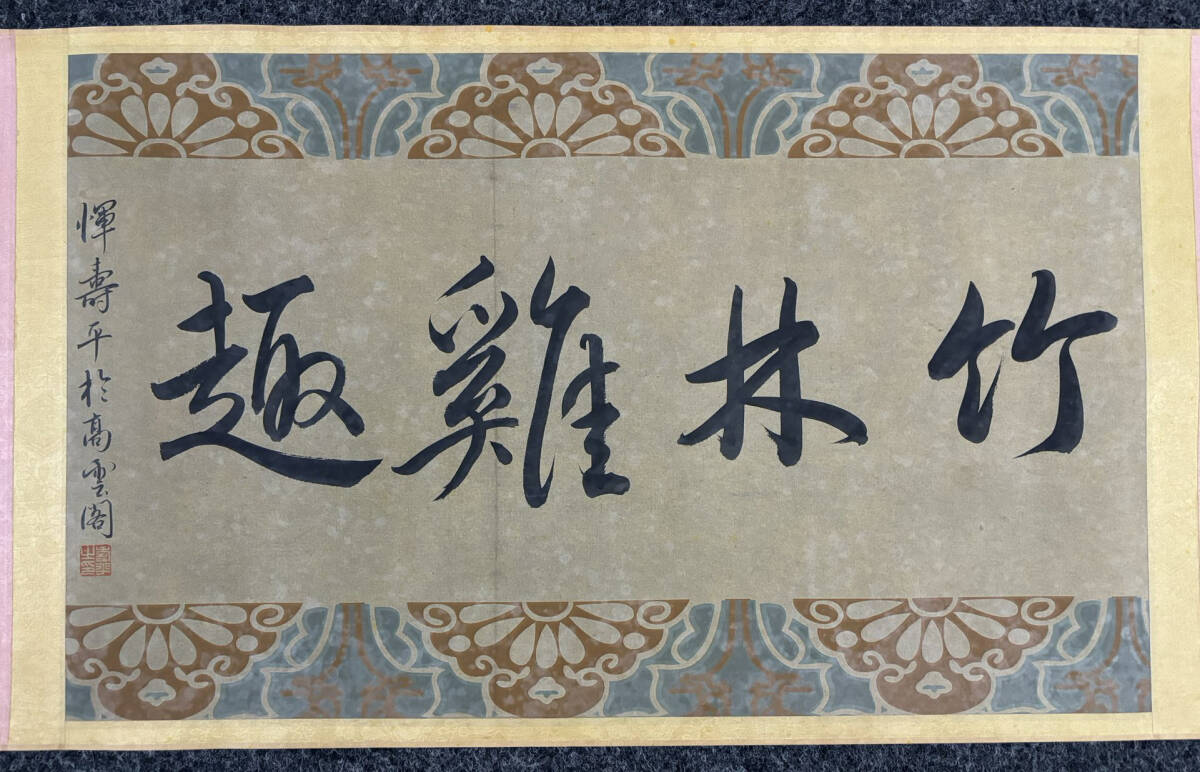 竹林雞趣
惲壽平於高雲閣